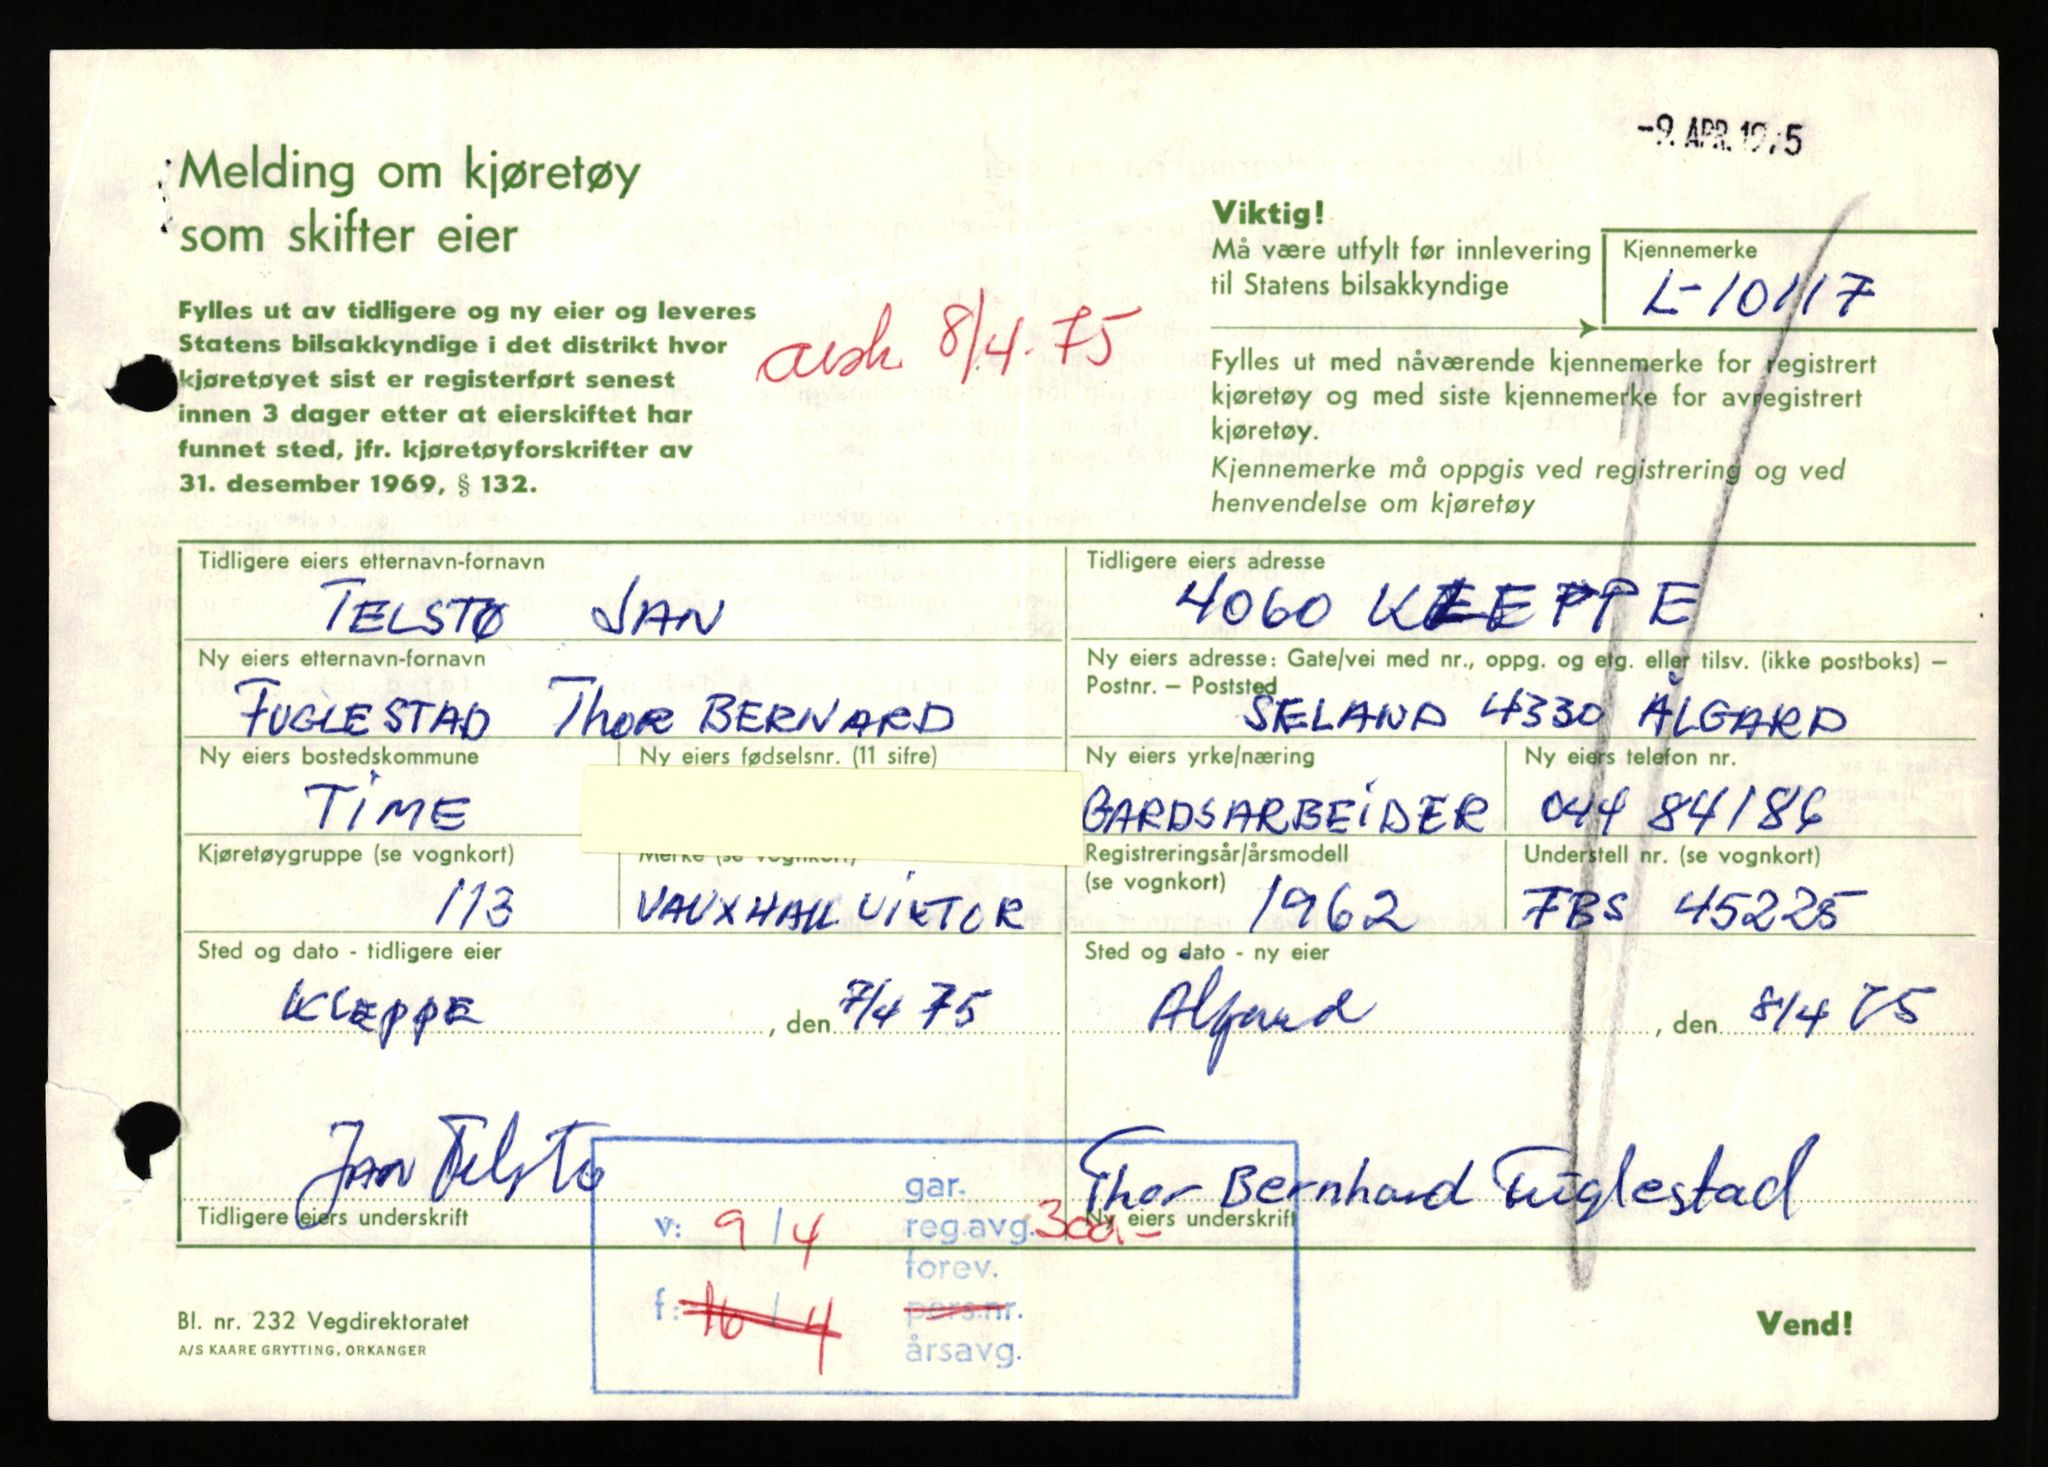 -9. APR. 1975
Melding om kjøretøy
som skifter eier
Viktig!
Må være utfylt før innlevering
til Statens bilsakkyndige
Kjennemerke
L-10117
Fylles ut av tidligere og ny eier og leveres
Statens bilsakkyndige i det distrikt hvor
kjøretøyet sist er registerført senest
innen 3 dager etter at eierskiftet har
funnet sted, jfr. kjøretøyforskrifter av
31. desember 1969, § 132.
avsk 8/4-75
Fylles ut med nåværende kjennemerke for registrert
kjøretøy og med siste kjennemerke for avregistrert
kjøretøy.
Kjennemerke må oppgis ved registrering og ved
henvendelse om kjøretøy
Tidligere eiers etternavn-fornavn
TELSTØ JAN
Tidligere eiers adresse
4060 KLEPPE
Ny eiers etternavn-fornavn
FUGLESTAD THOR BERNARD
Ny eiers adresse: Gate/vei med nr., oppg. og etg. eller tilsv. (ikke postboks) –
Postnr. – Poststed
SELAND 4330 ÅLGARD
Ny eiers bostedskommune
TIME
Ny eiers fødselsnr. (11 sifre)
Ny eiers yrke/næring
GARDSARBEIDER
Ny eiers telefon nr.
044 84186
Kjøretøygruppe (se vognkort)
113
Merke (se vognkort)
VAUXHALL VIKTOR
Registreringsår/årsmodell
(se vognkort)
1962
Understell nr. (se vognkort)
FBS 45225
Sted og dato - tidligere eier
KLEPPE , den 7/4 75
Sted og dato - ny eier
Ålgard , den 8/4 75
Jan Telstø
Tidligere eiers underskrift
Thor Bernhard Fuglestad
Ny eiers underskrift
gar.
v: 9/4 reg.avg. 300,-
forev.
f: 16/4 pers.nr.
årsavg.
Bl. nr. 232 Vegdirektoratet
A/S KAARE GRYTTING, ORKANGER
Vend!